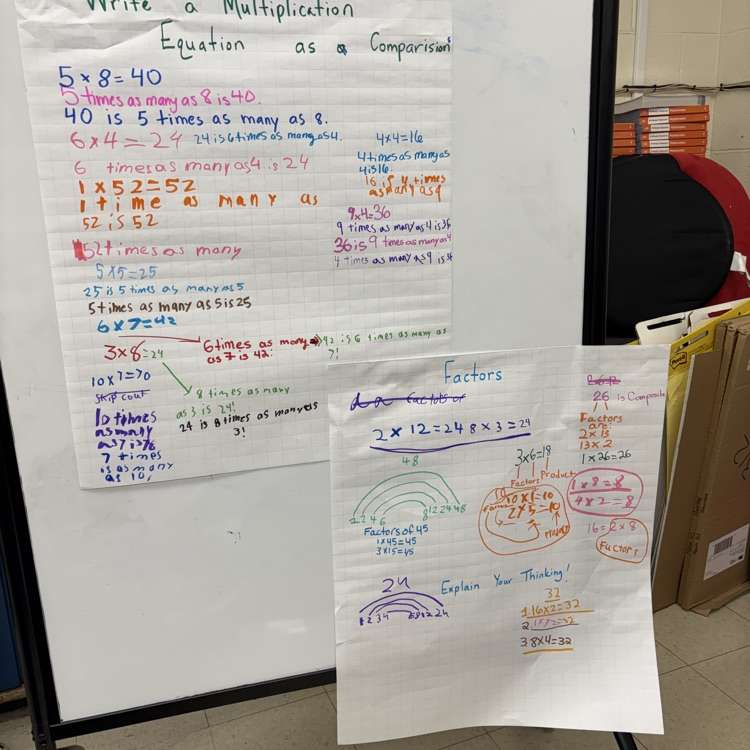 Write a Multiplication
Equation as a Comparision
5 × 8 = 40
5 times as many as 8 is 40.
40 is 5 times as many as 8.
6 × 4 = 24 24 is 6 times as many as 4.
6 times as many as 4 is 24
1 × 52 = 52
1 time as many as
52 is 52
52 times as many
5 × 5 = 25
25 is 5 times as many as 5
5 times as many as 5 is 25
6 × 7 = 42
6 times as many
as 7 is 42.
42 is 6 times as many as
7!
3 × 8 = 24
8 times as many
as 3 is 24!
24 is 8 times as many as
3!
10 × 7 = 70
skip cout
10 times
as many
as 7 is 70
7 times
is as many
as 10,
4 × 4 = 16
4 times as many as
4 is 16.
16 is 4 times
as many as 4
9 × 4 = 36
9 times as many as 4 is 36
36 is 9 times as many as 4
4 times as many as 9 is 36
Factors
2 × 12 = 24 8 × 3 = 24
48
1 2 4 6 8 12 24 48
Factors of 45
1 × 45 = 45
3 × 15 = 45
24
1 2 3 4 6 8 12 24
3 × 6 = 18
Factors Product
10
10 × 1 = 10
2 × 5 = 10
Factors
Product
26 is Composite
Factors
are:
2 × 13
13 × 2
1 × 26 = 26
1 × 8 = 8
4 × 2 = 8
16 = 2 × 8
Factors
Explain Your Thinking!
32
1. 16 × 2 = 32
2.
3. 8 × 4 = 32
Post-it